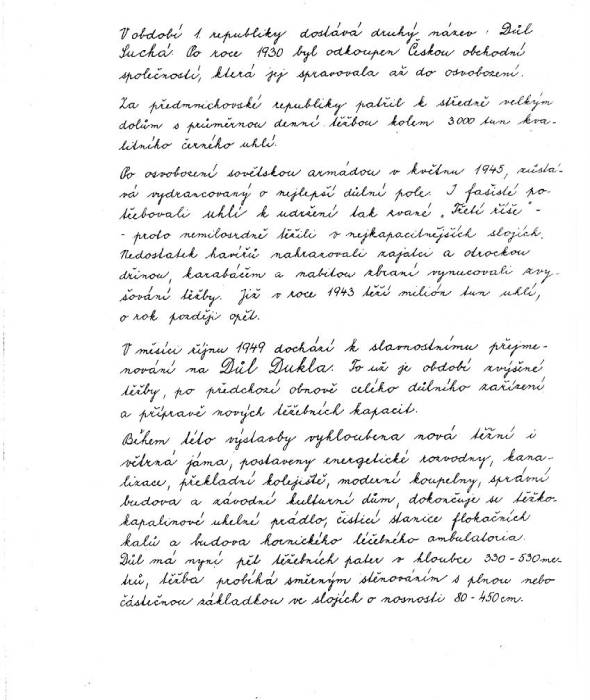 V období 1. republiky dostává druhý název : Důl
Suchá. Po roce 1930 byl odkoupen Českou obchodní
společností, která jej spravovala až do osvobození.
Za předmnichovské republiky patřil k středně velkým
dolům s průměrnou denní těžbou kolem 3000 tun kva-
litního černého uhlí.
Po osvobození sovětskou armádou v květnu 1945, zůstá-
vá vydrancovaný o nejlepší důlní pole. I fašisté po-
třebovali uhlí k udržení tak zvané „Třetí říše" -
- proto nemilosrdně těžili v nejkapacitnějších slojích.
Nedostatek havířů nahrazovali zajatci a otrockou
dřinou, karabáčem a nabitou zbraní vynucovali zvy-
šování těžby. Již v roce 1943 těží milión tun uhlí,
o rok později opět.
V měsíci říjnu 1949 dochází k slavnostnímu přejme-
nování na Důl Dukla. To už je období zvýšené
těžby, po předchozí obnově celého důlního zařízení
a přípravě nových těžebních kapacit.
Během této výstavby vyhloubena nová těžní i
větrná jáma, postaveny energetické rozvodny, kana-
lizace, překladní kolejiště, moderní koupelny, správní
budova a závodní kulturní dům, dokončuje se těžko-
kapalinové uhelné prádlo, čistící stanice flokačních
kalů a budova hornického léčebného ambulatoria.
Důl má nyní pět těžebních pater v hloubce 330-530 me-
trů, těžba probíhá směrným stěnováním s plnou nebo
částečnou základkou ve slojích o nosnosti 80-450cm.